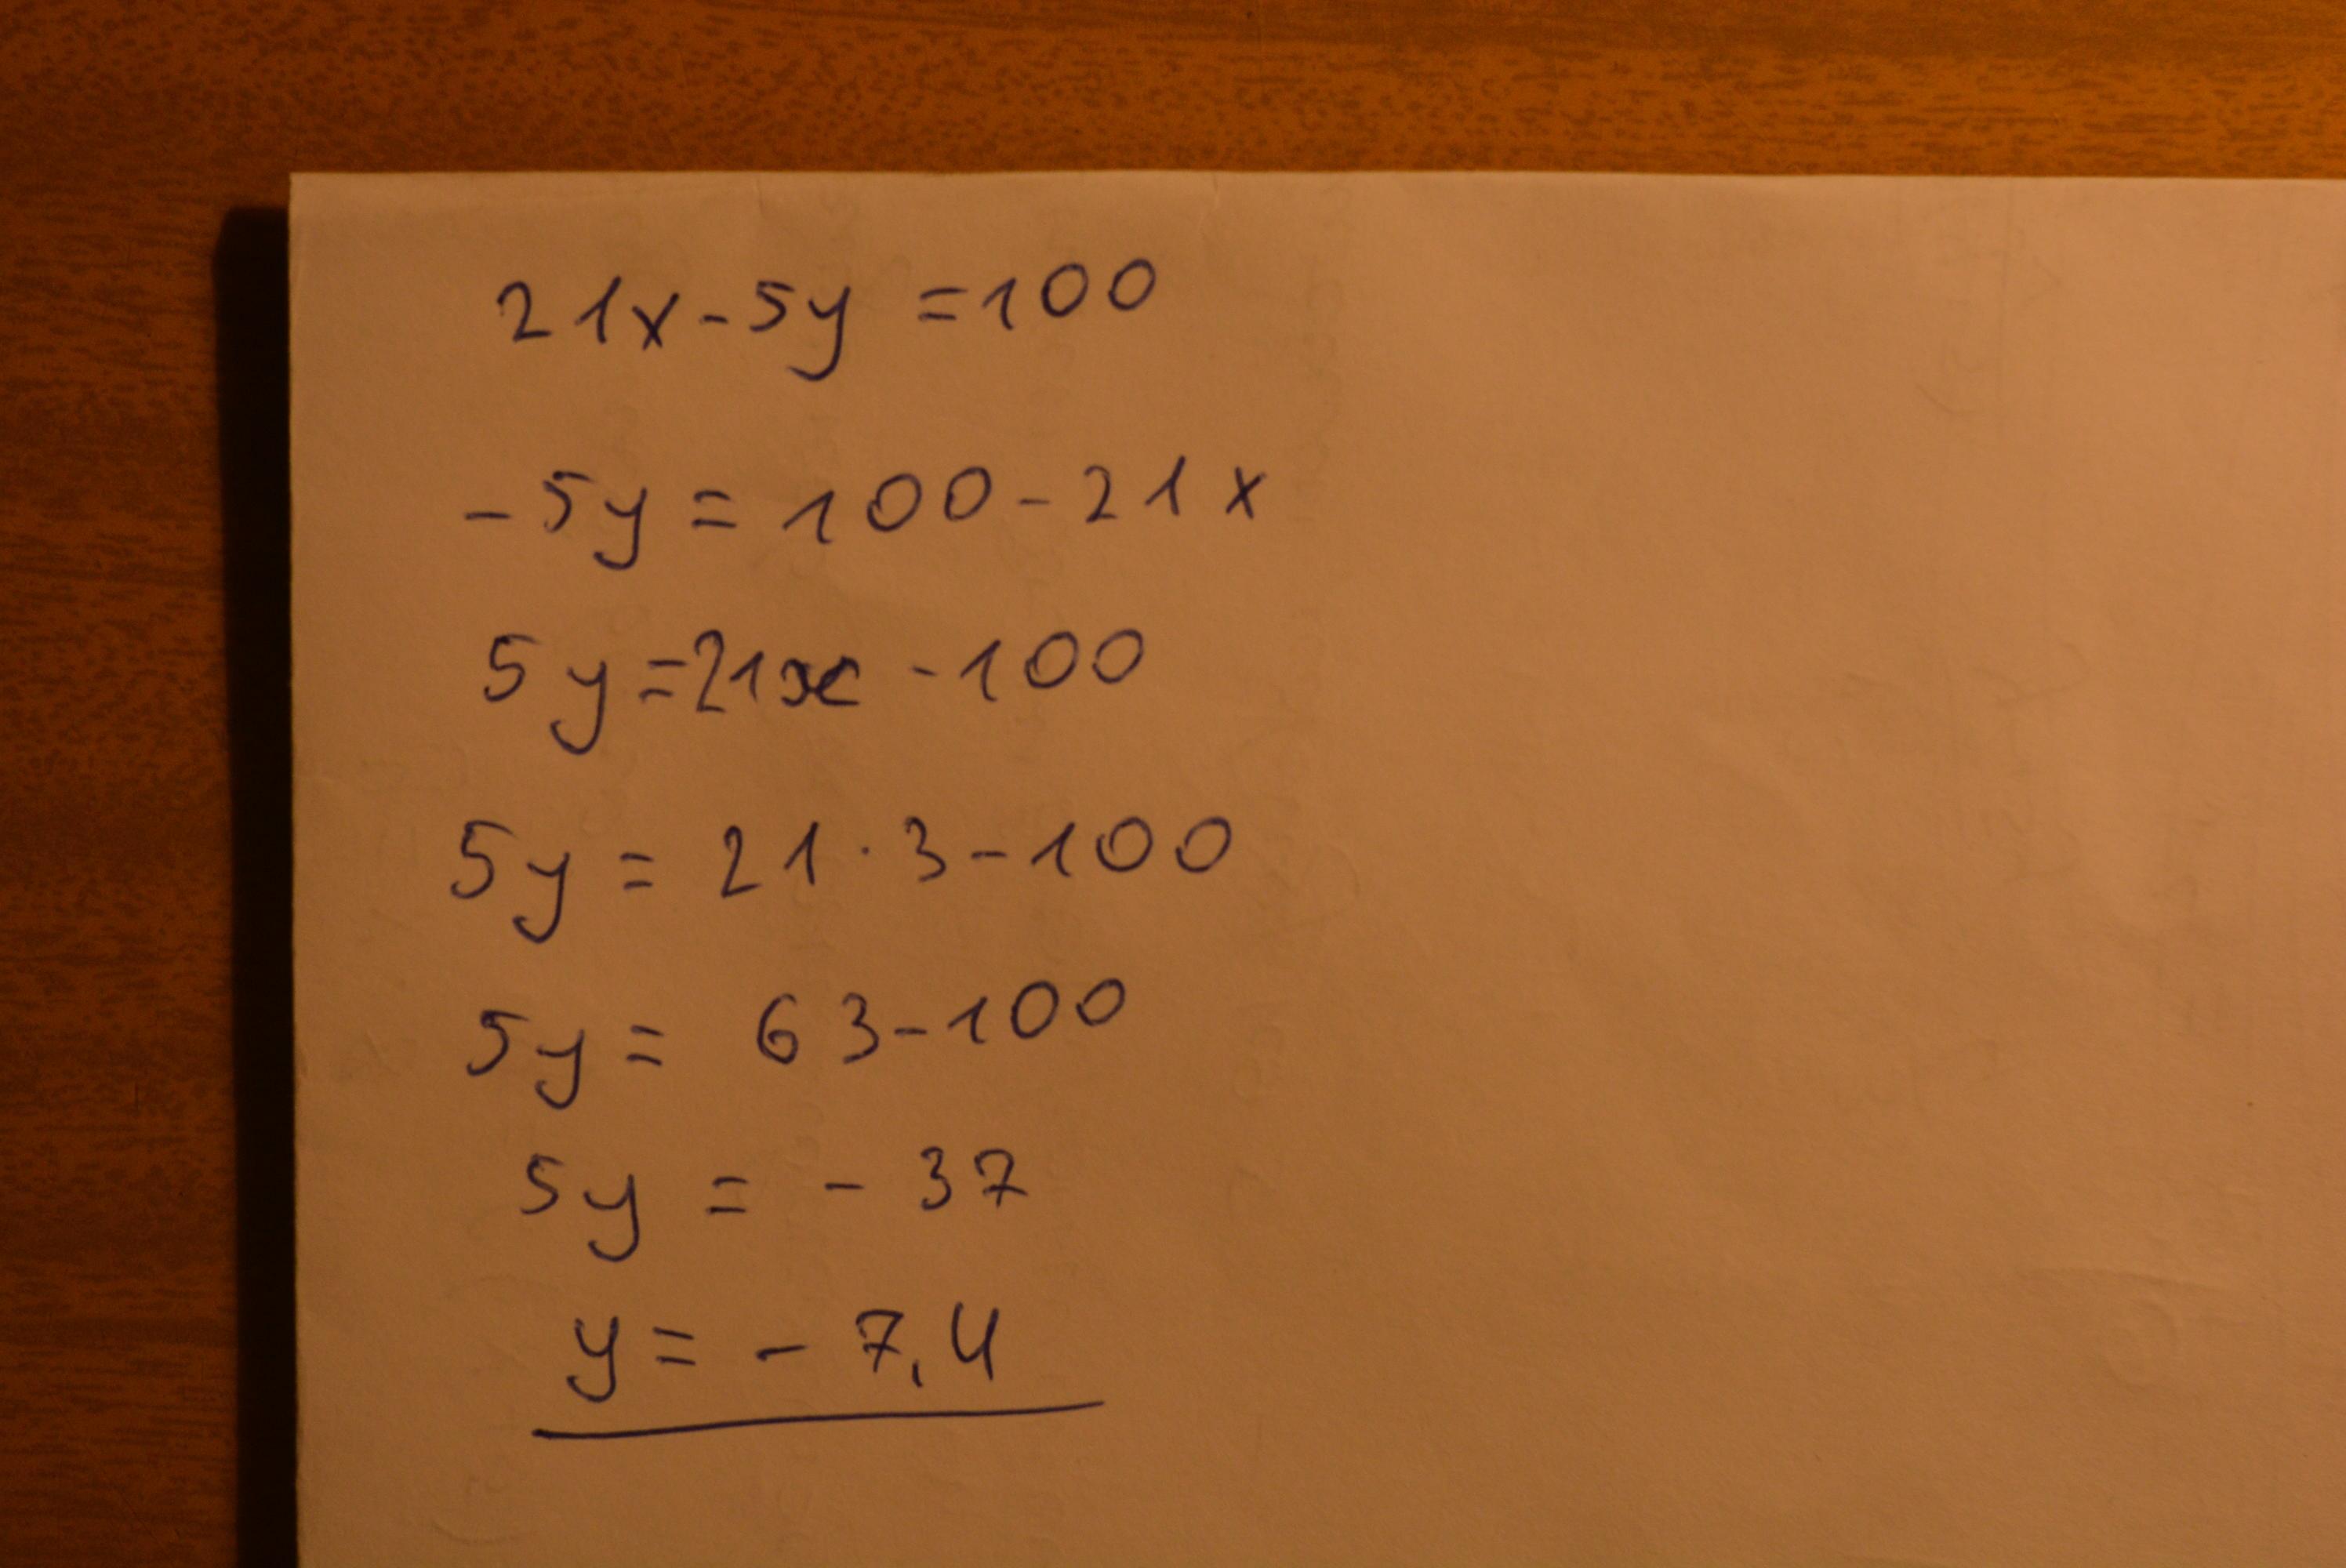 21x-5y =100
-5y = 100-21x
5y=21x -100
5y = 21·3-100
5y = 63-100
5y = - 37
y= - 7,4